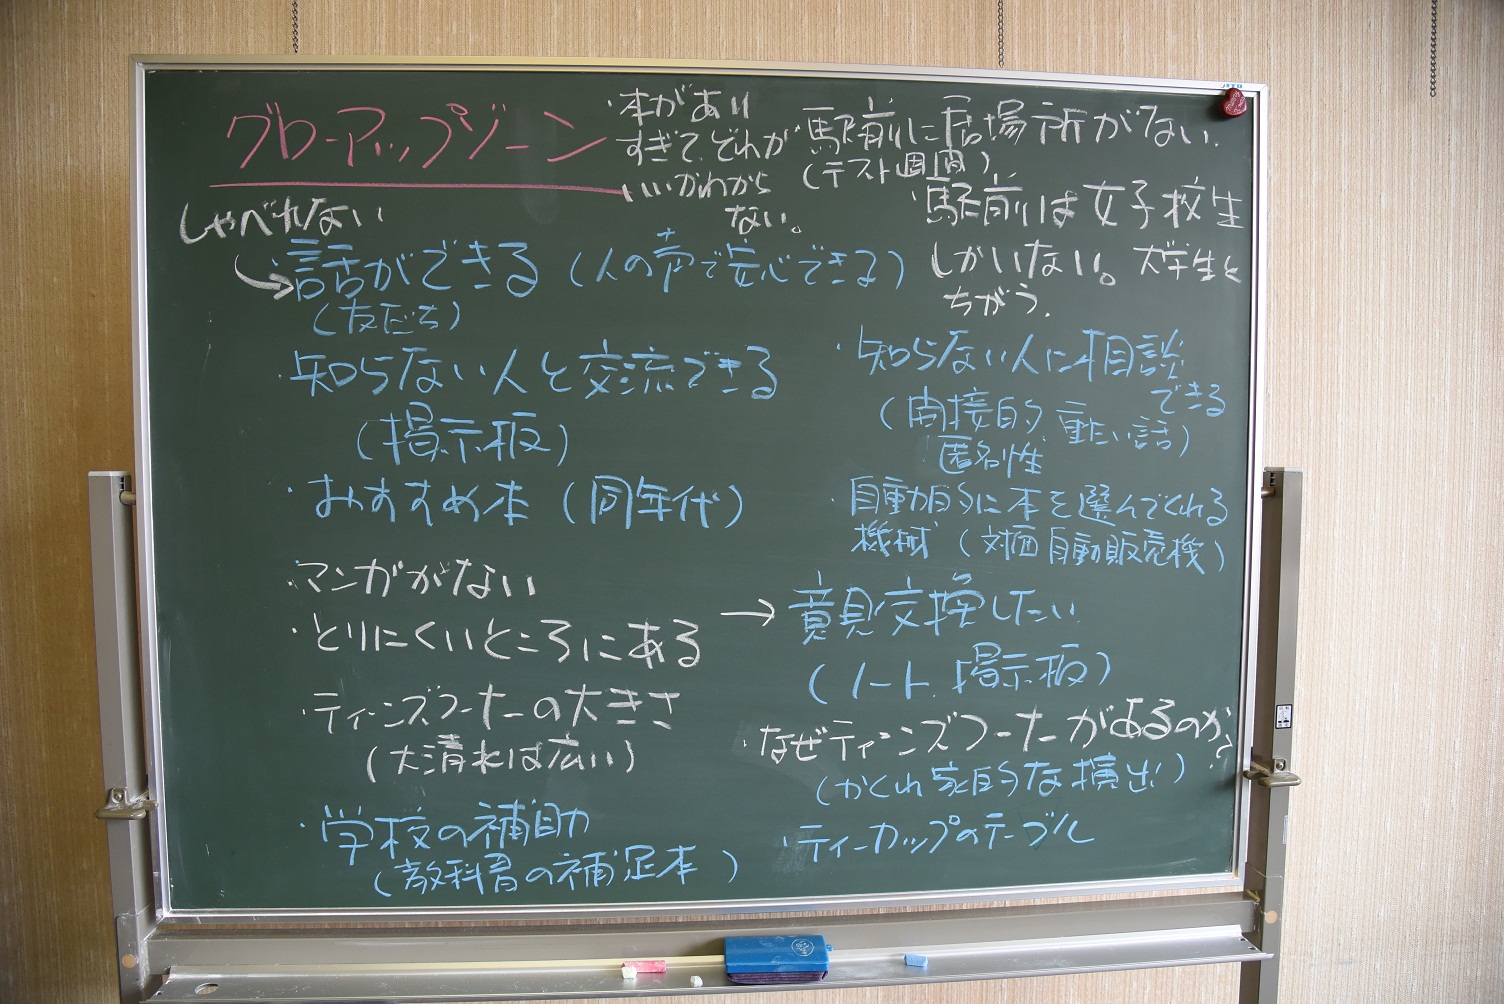 グローアップゾーン
・本があり
すぎて、どれが
いいかわから
ない。
・駅前に居場所がない.
(テスト週間)
・駅前は女子校生
しかいない。大学生と
ちがう.
しゃべれない
→・話ができる(人の声で安心できる)
(友だち)
・知らない人と交流できる
(掲示板)
・おすすめ本(同年代)
・マンガがない
・とりにくいところにある
・ティーンズコーナーの大きさ
(大清水は広い)
・学校の補助
(教科書の補足本)
・知らない人に相談
できる
(間接的 重たい話)
匿名性
・自動的に本を選んでくれる
機械(対面自動販売機)
→意見交換したい
(ノート、掲示板)
・なぜティーンズコーナーがあるのか?
(かくれ家的な演出)
・ティーカップのテーブル